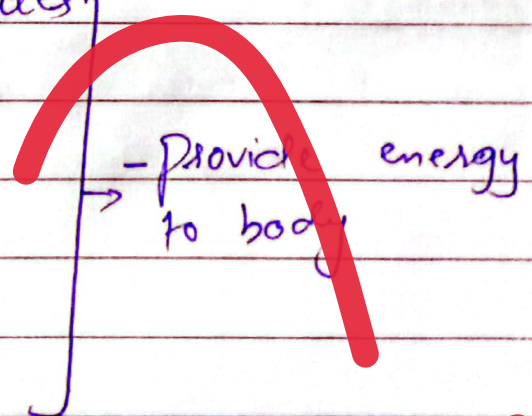 - Provide energy
to body